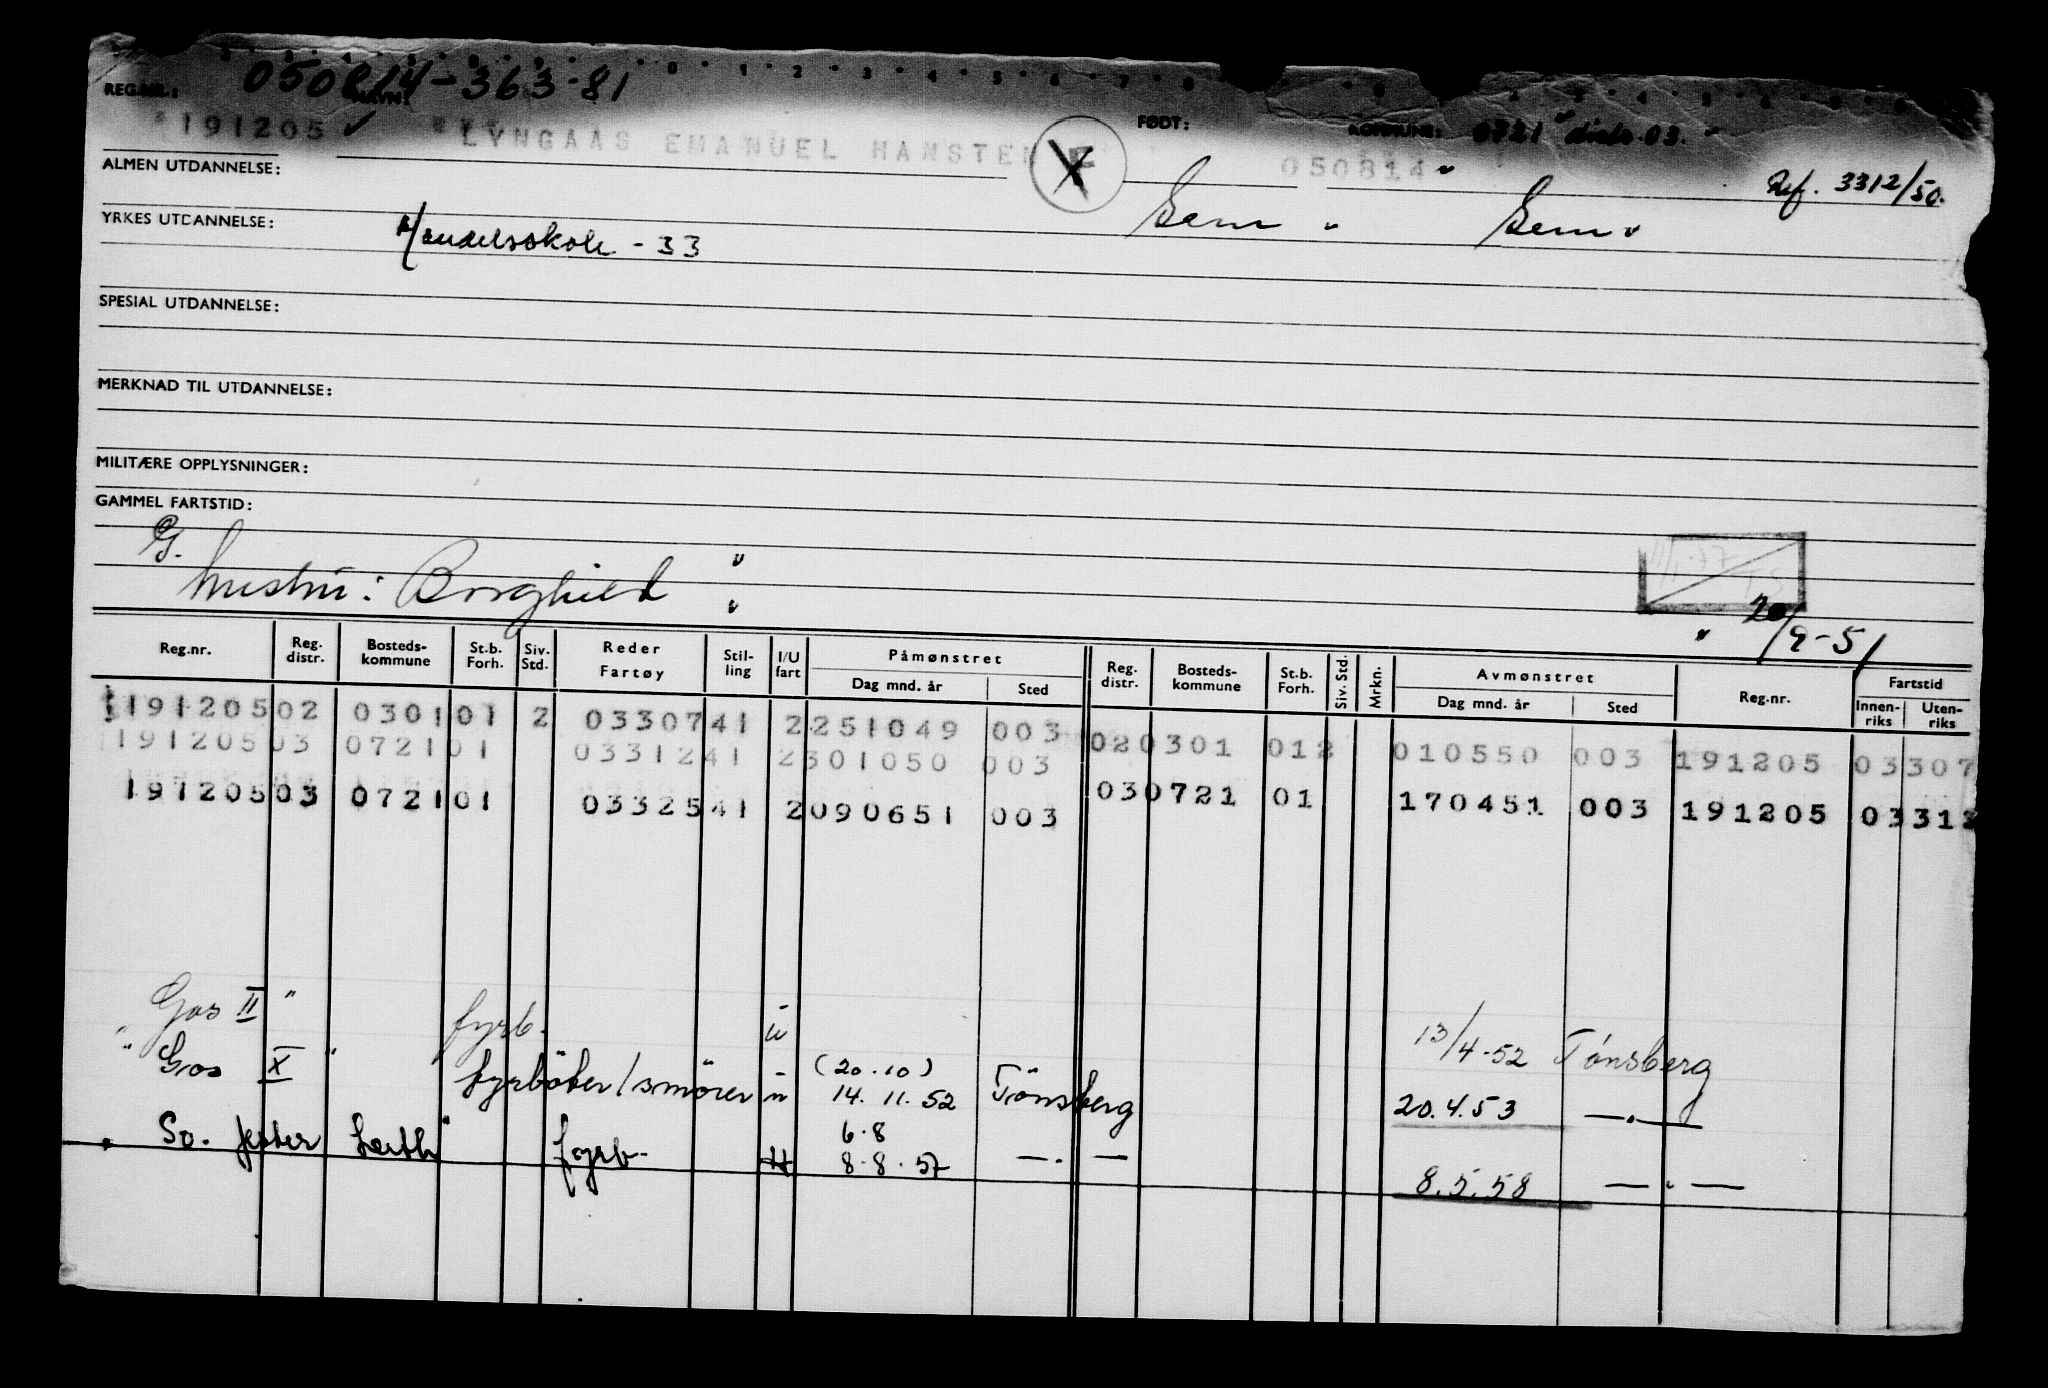 REG.NR.: 050814-363-81 NAVN: FØDT: KOMMUNE: 0721 distr. 03.
191205 LYNGAAS EMANUEL HANSTEN F 050814 Ref. 3312/50.
ALMEN UTDANNELSE: Sem Sem
YRKES UTDANNELSE: Handelsskole - 33
SPESIAL UTDANNELSE:
MERKNAD TIL UTDANNELSE:
MILITÆRE OPPLYSNINGER:
GAMMEL FARTSTID:
G.
hustru: Borghild
20/9-51
Reg.nr. Reg. distr. Bosteds-kommune St.b. Forh. Siv. Std. Reder Fartøy Stil-ling I/U fart Påmønstret Dag mnd. år Sted Reg. distr. Bosteds-kommune St.b. Forh. Siv. Std. Mrkn. Avmønstret Dag mnd. år Sted Reg.nr. Fartstid Innen-riks Uten-riks
191205 02 0301 01 2 03307 41 2 251049 003 02 0301 01 2 010550 003 191205 03307
191205 03 0721 01 03312 41 2 301050 003 03 0721 01 170451 003 191205 03312
191205 03 0721 01 03325 41 2 090651 003
Gos II " fyrb. u 13/4-52 Tønsberg
" Gos X " fyrbøter/smører u (20.10) 14.11.52 Tønsberg 20.4.53 —"—
So. fyrb. 6.8 8.8.57 —"— 8.5.58 —"—